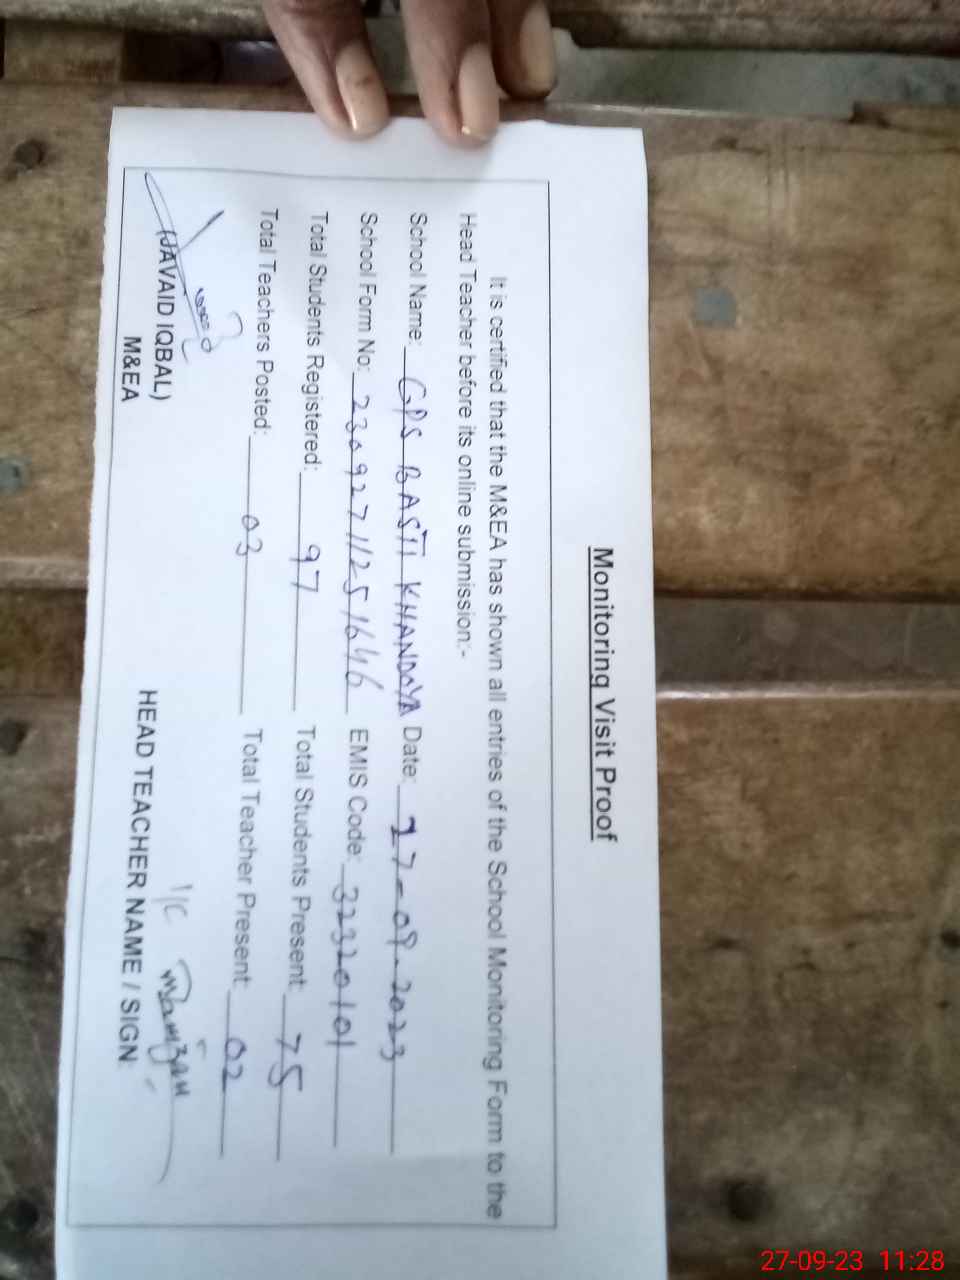 Monitoring Visit Proof
It is certified that the M&EA has shown all entries of the School Monitoring Form to the
Head Teacher before its online submission:-
School Name: GPS BASTI KHANDOYA Date: 27-09-2023
School Form No: 23092711251646 EMIS Code: 32320101
Total Students Registered: 97 Total Students Present: 75
Total Teachers Posted: 03 Total Teacher Present: 02
I/C Ramzan
(JAVAID IQBAL)
M&EA
HEAD TEACHER NAME / SIGN:
27-09-23 11:28